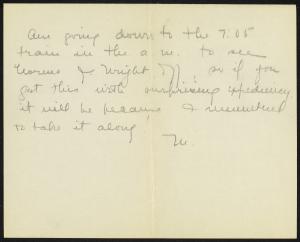 Am going down to the 7:05
train in the a m. to see
& Wright, so if you
get this with surprising expediency
it will be because I remembered
to take it along
M.